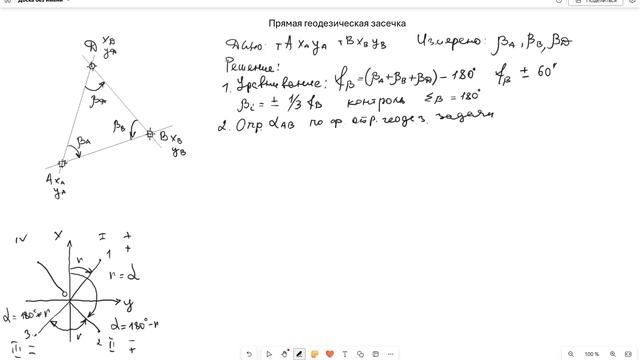 Доска без имени
Поделиться
Прямая геодезическая засечка
Дано: тA xA yA тB xB yB Измерено: βA, βB, βD
Решение:
1. Уравнивание: fβ = (βA + βB + βD) − 180° fβ ± 60"
βi = ± 1/3 fβ контроль Σβ = 180°
2. Опр αAB по ф. отр. геодез. задачи
D xD
yD
βD
βB
B xB
yB
βA
A xA
yA
IV X I +
+
r 1
r = α
y
α = 180° + r
α = 180° − r
3 r 2 II −
III − +
−
100 %